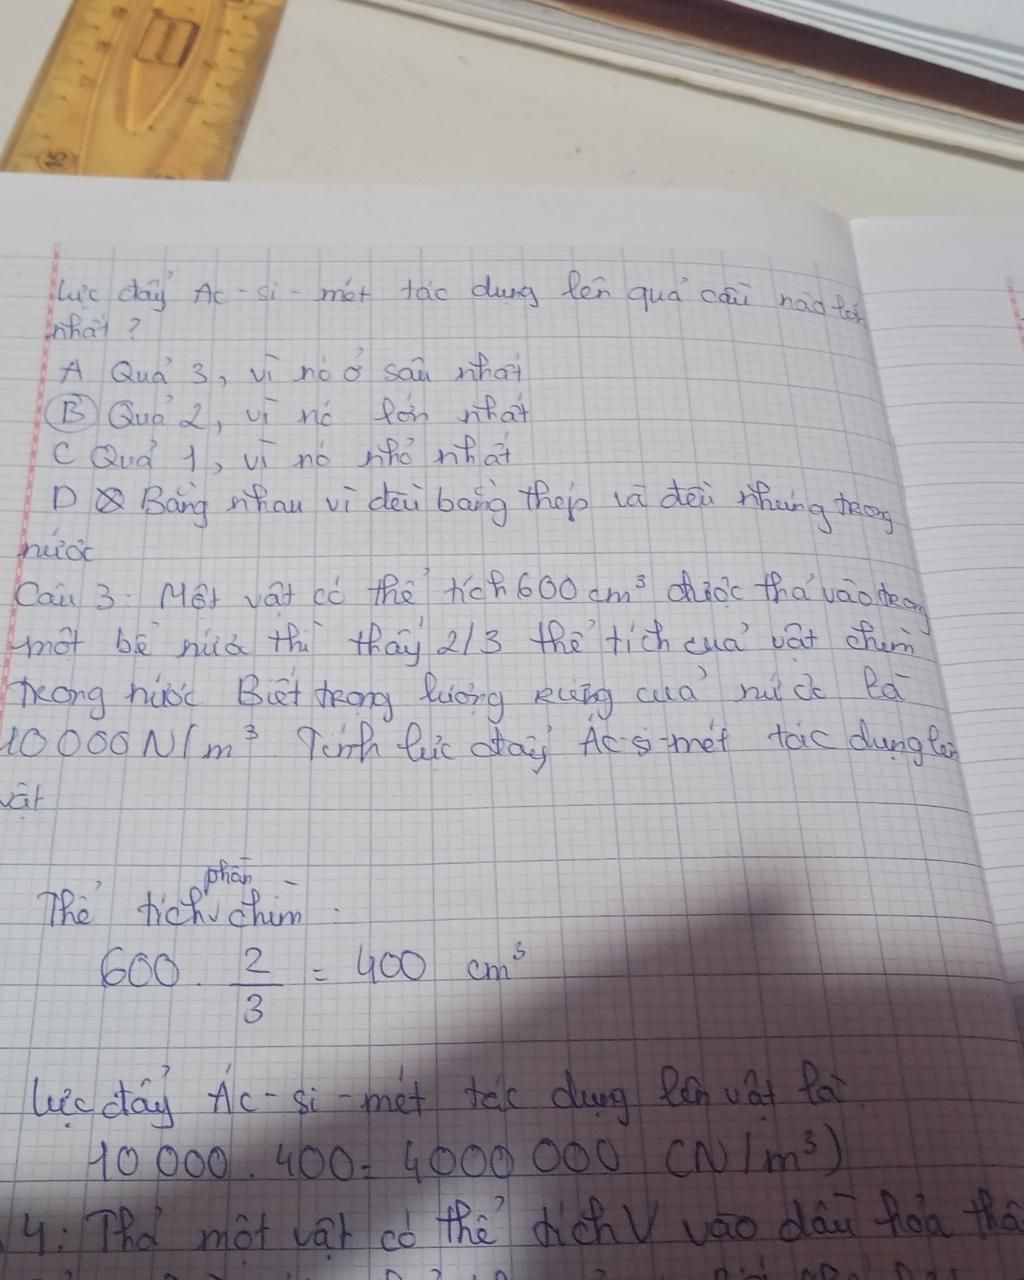 Lực đẩy Ác-si-mét tác dụng lên quả cầu nào lớn
nhất?
A Quả 3, vì nó ở sâu nhất
B Quả 2, vì nó lớn nhất
C Quả 1, vì nó nhỏ nhất
D Bằng nhau vì đều bằng thép và đều nhúng trong
nước
Câu 3: Một vật có thể tích 600 cm³ được thả vào trong
một bể nước thì thấy 2/3 thể tích của vật chìm
trong nước Biết trọng lượng riêng của nước là
10 000 N/m³ Tính lực đẩy Ác-si-mét tác dụng lên
vật
Thể tích phần chìm:
600 . 2/3 = 400 cm³
Lực đẩy Ác-si-mét tác dụng lên vật là
10 000 . 400 = 4000 000 (N/m³)
4: Thả một vật có thể tích V vào dầu hỏa thấ